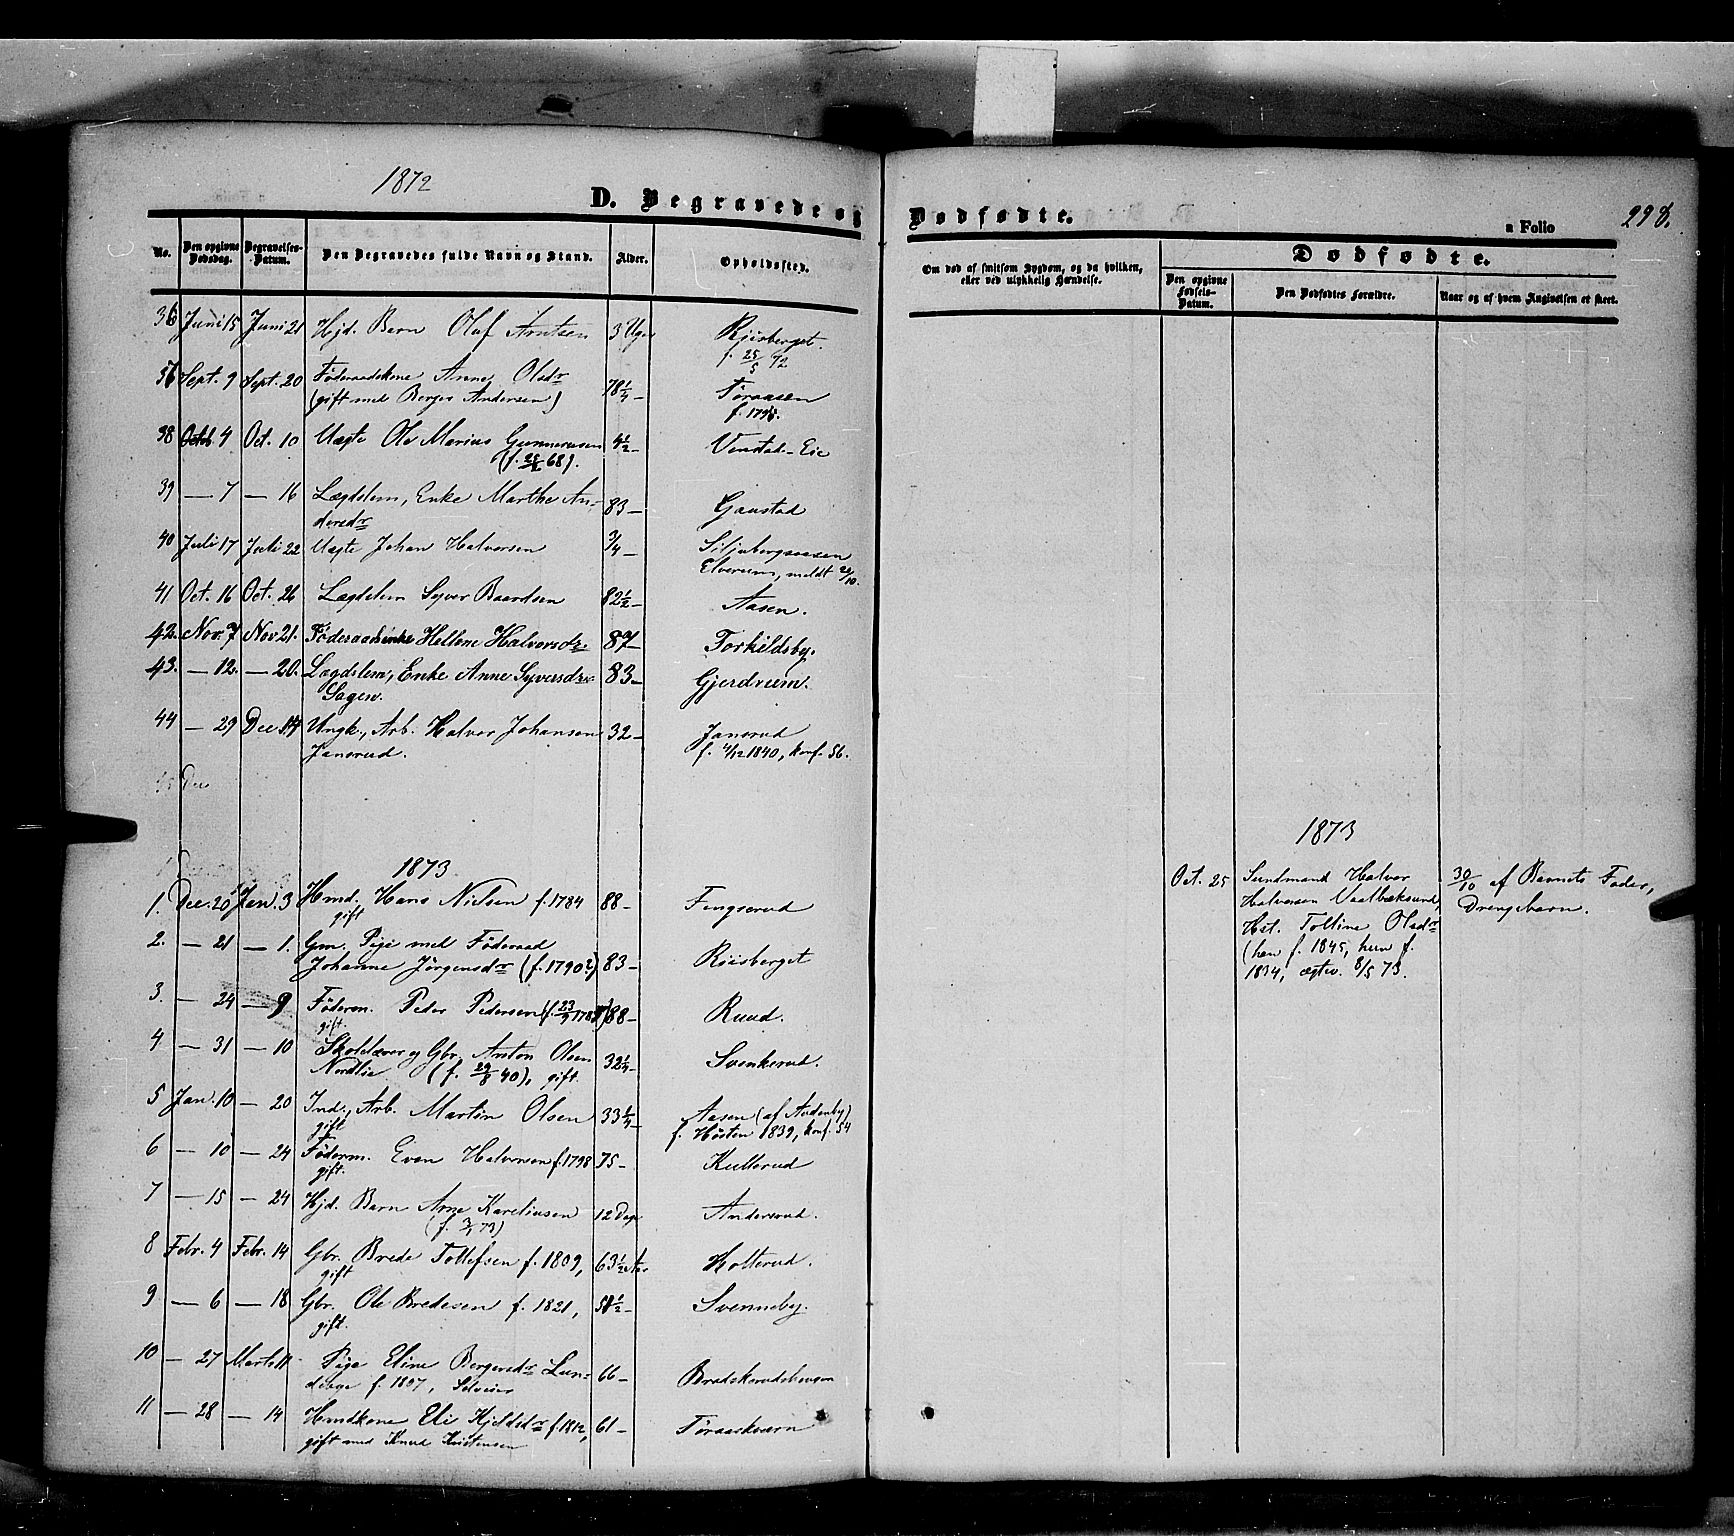 1872
D. Begravede og Dødfødte.
a Folio 298.
No. Den opgivne Dødsdag. Begravelses-Datum. Den Begravedes fulde Navn og Stand. Alder. Opholdssted. Om død af smitsom Sygdom, og da hvilken, eller ved ulykkelig Hændelse.
Dødfødte.
Den opgivne Fødsels-Datum. Den Dødfødtes Forældre. Naar og af hvem Angivelsen er skeet.
36 Juni 15 Juni 21 Hjd. Barn Oluf Arntsen 3 Uger Riisberget.
f. 25/5 72
Sept. 9 Sept. 20 Føderaadskone Anne Olsdr 78 1/4 - Føraasen
(gift med Berger Andersen) f.
38 Octb. 4 Oct. 10 Uægte Ole Marius Gunnerusen 4 1/2 - Vinstad-Eie
39 — 7 — 16 Lægdslem, Enke Marthe An- 83 - Gaustad
dersdr
40 Juli 17 Juli 22 Uægte Johan Halvorsen 3/4 - Siljubergsaasen
Elverum, meldt 20/10.
41 Oct. 16 Oct. 26 Lægdslem Syver Baardsen 82 1/2 - Aasen.
42. Nov. 7 Nov 21. Føderaadsenke Hellene Halvorsdr. 87 - Torkildsby.
43. — 12. — 20. Lægdslem, Enke Anne Syversdr. 83 - Gjerdrum.
Sagen.
44 — 29 Dec. 14 Ungk., Arb. Halvor Johansen 32 - Jansrud
Jansrud. f. 4/12 1840, konf. 56.
45 Dec
1873
1. Dec. 20 Jan. 3 Hmd. Hans Nielsen f. 1784 88 - Fengsrud
gift
2. — 21 — 1. Gm. Pige med Føderaad
Johanne Jørgensdr (f. 1790?) 83 - Riisberget
3. — 24 — 9 Føderm. Peder Pedersen 88 - Ruud.
gift.
4 — 31 — 10 Skolelærer og Gbr. Anton Olsen 32 1/4 - Svenkerud.
Nordlie (f. 29/8 40), gift.
5 Jan. 10 — 20 Ind., Arb. Martin Olsen 33 1/4 - Aasen (af Audenby)
gift f. Høsten 1839, konf. 54
6 — 10 — 24 Føderm. Even Halvorsen f. 1798 75 - Kullerud
gift.
7 — 15 — 24 Hjd. Barn Arne Kareliusen 12 Dage Andersrud.
(f. 3/1 73)
8 Febr. 4 Febr. 14 Gbr. Brede Tollefsen f. 1809, 63 1/2 Aar Holterud.
gift
9 — 6 — 18 Gbr. Ole Bredesen f. 1821, 51 1/2 - Svenneby.
gift.
10 — 27 Marts 11 Pige Eline Bergersdr Lun- 66 -
debye f. 1807, Selveier
11 — 28 — 14 Hmdkone Eli Kjeldsdr f. 1812, 61 - Føraaskværn
gift med Knud Kristensen
1873
Oct. 25 Sundmand Halvor
Halvorsen Vaalbæksund,
Hst. Tolline Olsdr
(han f. 1845, hun f.
1834, ægtev. 8/5 73.
30/10 af Barnets Fader,
Drengebarn.